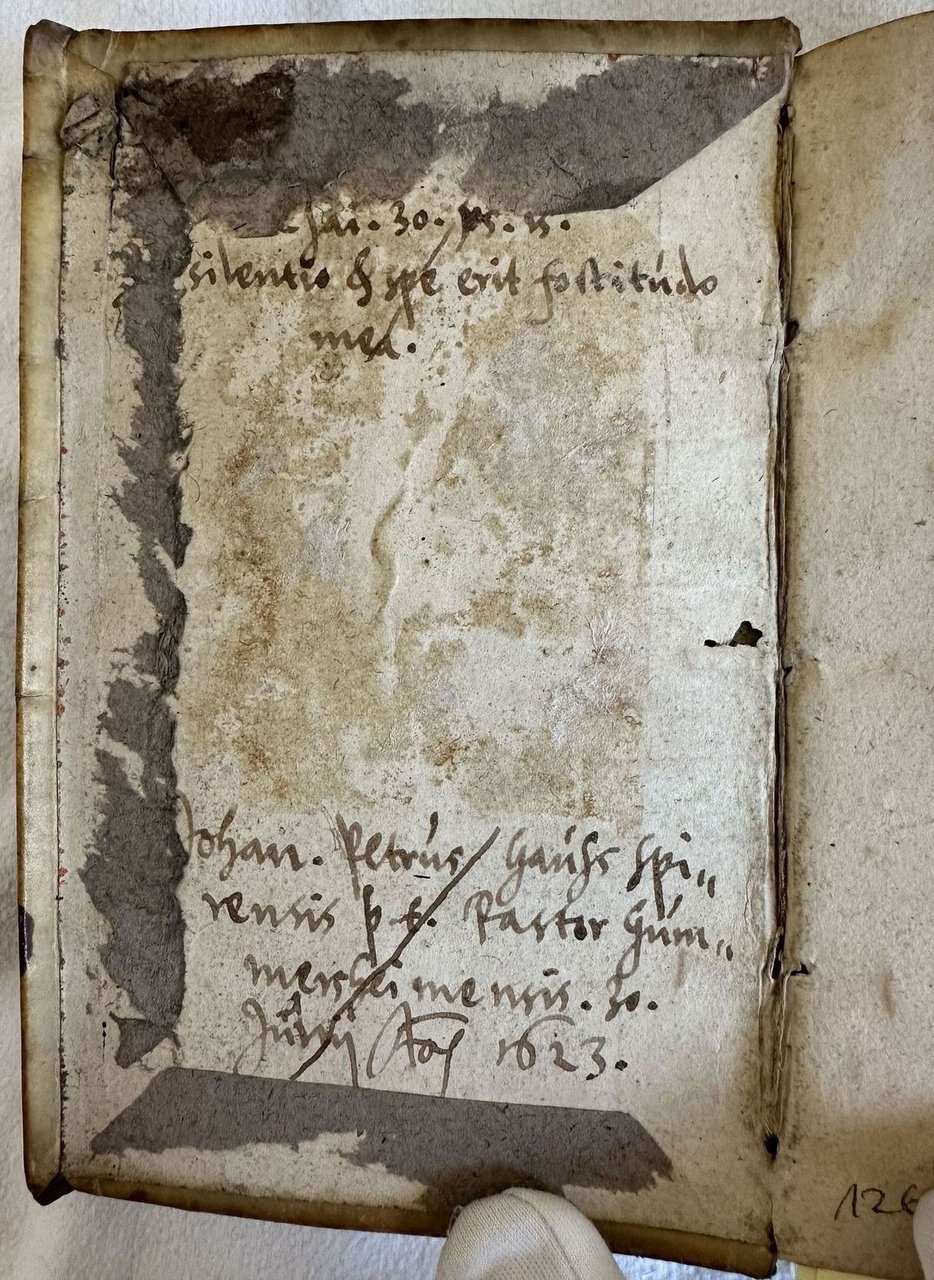 Esai. 30. vs. 15.
silentio & spe erit fortitudo
mea.
Johan. Petrus Gauhs Spi„
rensis p. t. Pastor Güm„
mersheimensis. 30.
Junij Ao 1623.
126